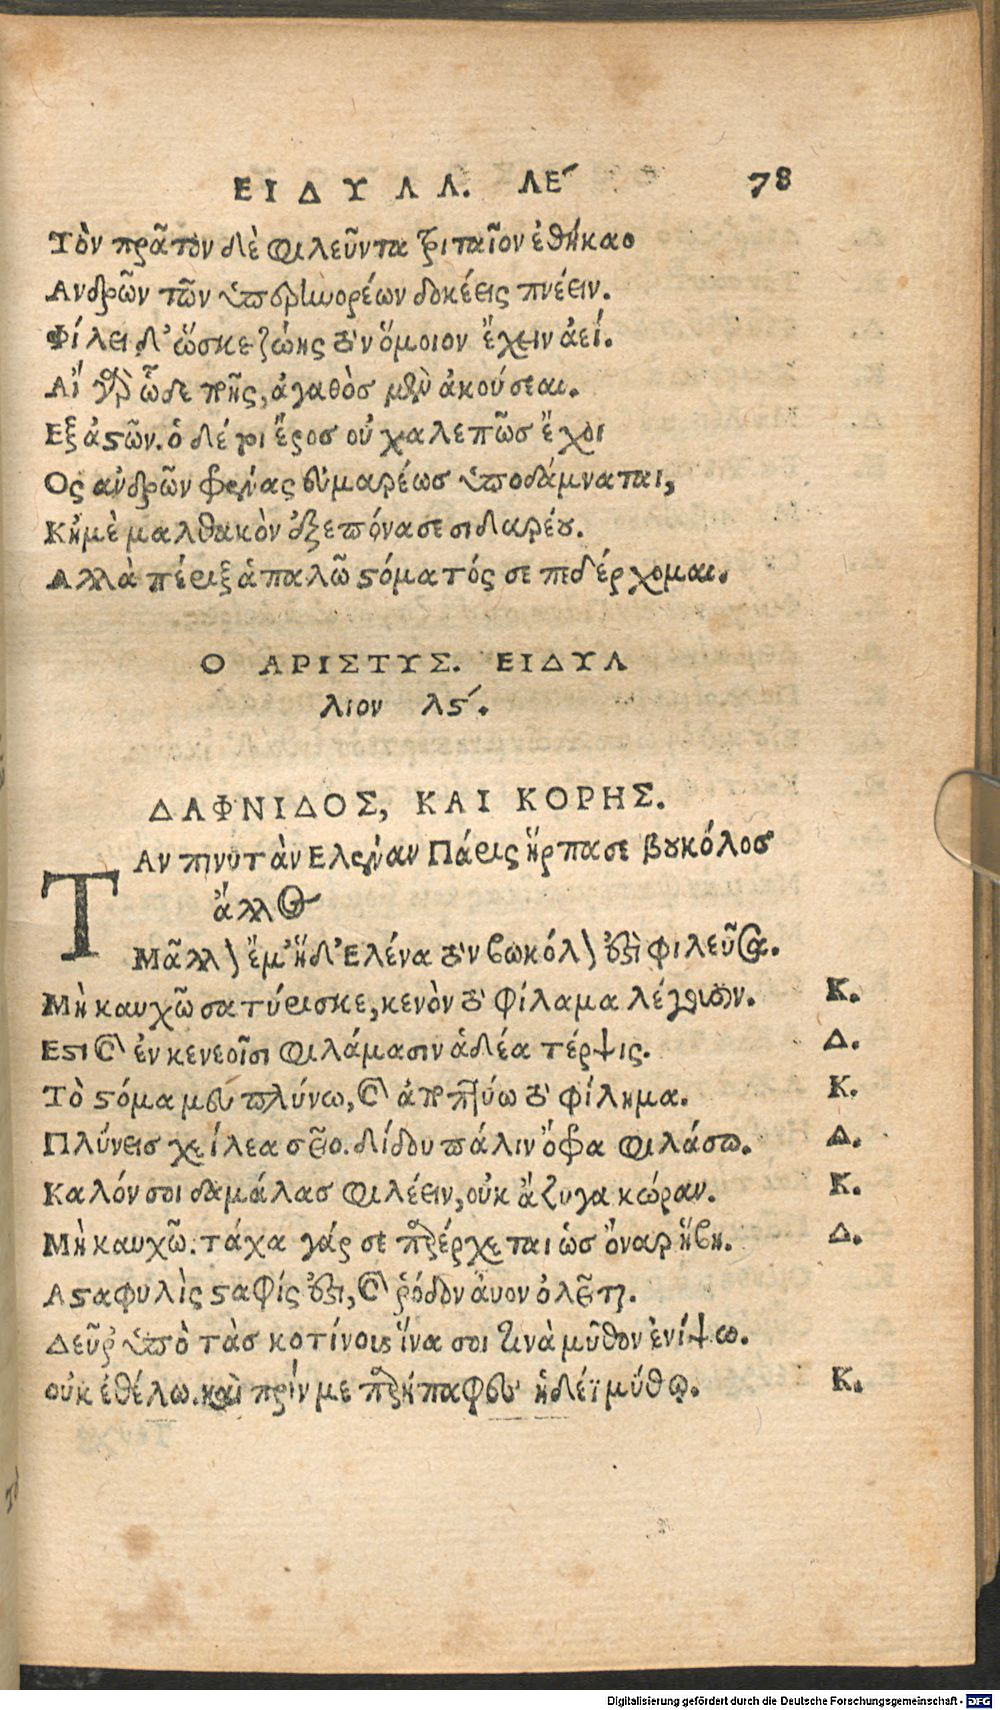 ΕΙΔΥΛΛ. ΛΕ´ 78
Τὸν πρᾶτον δὲ φιλεῦντα τριταῖον ἐθήκαο
Ανδρῶν τῶν ὑπερηνορέων δοκέεις πνέειν.
Φίλει δ' ὥσκε ζώης τὸν ὅμοιον ἔχειν ἀεί.
Αἴ γὰρ ὧδε ποιῇς, ἀγαθὸς μὲν ἀκούσεαι.
Εξ ἀστῶν. ὁ δέ τοι ἔρος οὐ χαλεπῶς ἔχοι
Ος ἀνδρῶν φρένας εὐμαρέως ὑποδάμναται,
Κἠμὲ μαλθακὸν ἐξεπόνασε σιδαρέου.
Αλλὰ πέριξ ἁπαλῶ στόματός σε πεδέρχομαι.
Ο ΑΡΙΣΤΥΣ. ΕΙΔΥΛ
λιον λϛ´.
ΔΑΦΝΙΔΟΣ, ΚΑΙ ΚΟΡΗΣ.
ΤΑν πινυτὰν Ελέναν Πάρις ἥρπασε βουκόλος
ἄλλος
Μᾶλλον ἔμ' ἥδ' Ελένα τὸν βωκόλον ἐστὶ φιλεῦσα.
Μὴ καυχῶ σατύρισκε, κενὸν τὸ φίλαμα λέγουσιν. Κ.
Εστι καὶ ἐν κενεοῖσι φιλάμασιν ἁδέα τέρψις. Δ.
Τὸ στόμα μευ πλύνω, καὶ ἀποπτύω τὸ φίλημα. Κ.
Πλύνεις χείλεα σεῖο. δίδου πάλιν ὄφρα φιλάσω. Δ.
Καλόν σοι δαμάλας φιλέειν, οὐκ ἄζυγα κώραν. Κ.
Μὴ καυχῶ. τάχα γάρ σε παρέρχεται ὡς ὄναρ ἥβη. Δ.
Α σταφυλὶς σταφίς ἐστι, καὶ ῥόδον ἀυον ὀλεῖται.
Δεῦρ' ὑπὸ τὰς κοτίνους ἵνα σοι τινὰ μῦθον ἐνίψω.
οὐκ ἐθέλω. καὶ πρίν με παρήπαφες ἡδέϊ μύθῳ. Κ.
Digitalisierung gefördert durch die Deutsche Forschungsgemeinschaft - DFG